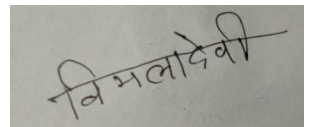 विमलादेवी